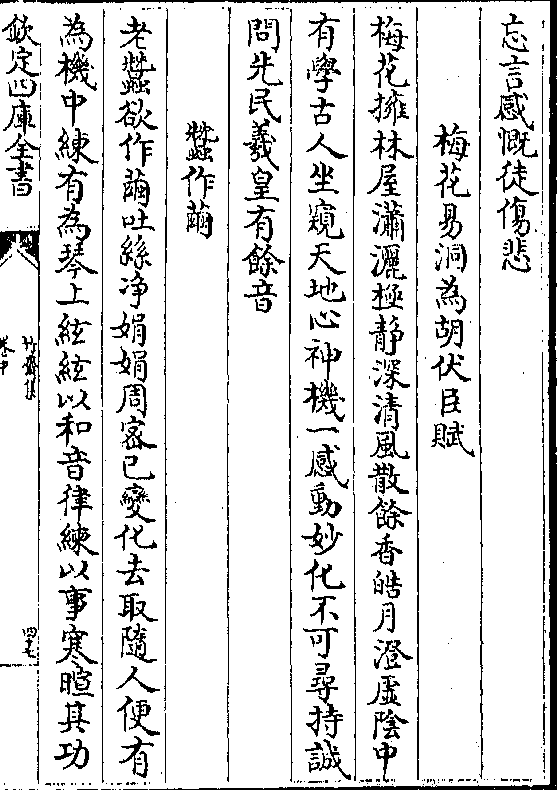 忘言感慨徒傷悲
梅花易洞為胡伏臣賦
梅花擁林屋瀟灑極靜深清風散餘香皓月澄虛陰中
有學古人坐窺天地心神機一感動妙化不可尋持誠
問先民羲皇有餘音
蠶作繭
老蠶欲作繭吐絲净娟娟周密已變化去取隨人便有
為機中練有為琴上絃絃以和音律練以事寒暄其功
欽定四庫全書
竹齋集
卷中
四七